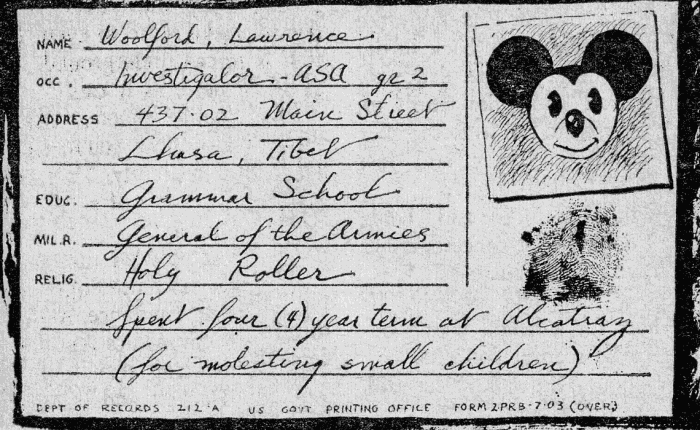 NAME Woolford, Lawrence
OCC. Investigator - ASA gr 2
ADDRESS 437-02 Main Street
Lhasa, Tibet
EDUC. Grammar School
MIL.R. General of the Armies
RELIG. Holy Roller
Spent four (4) year term at Alcatraz
(for molesting small children)
DEPT OF RECORDS 212-A US GOVT PRINTING OFFICE FORM 2PRB-7-03 (OVER)